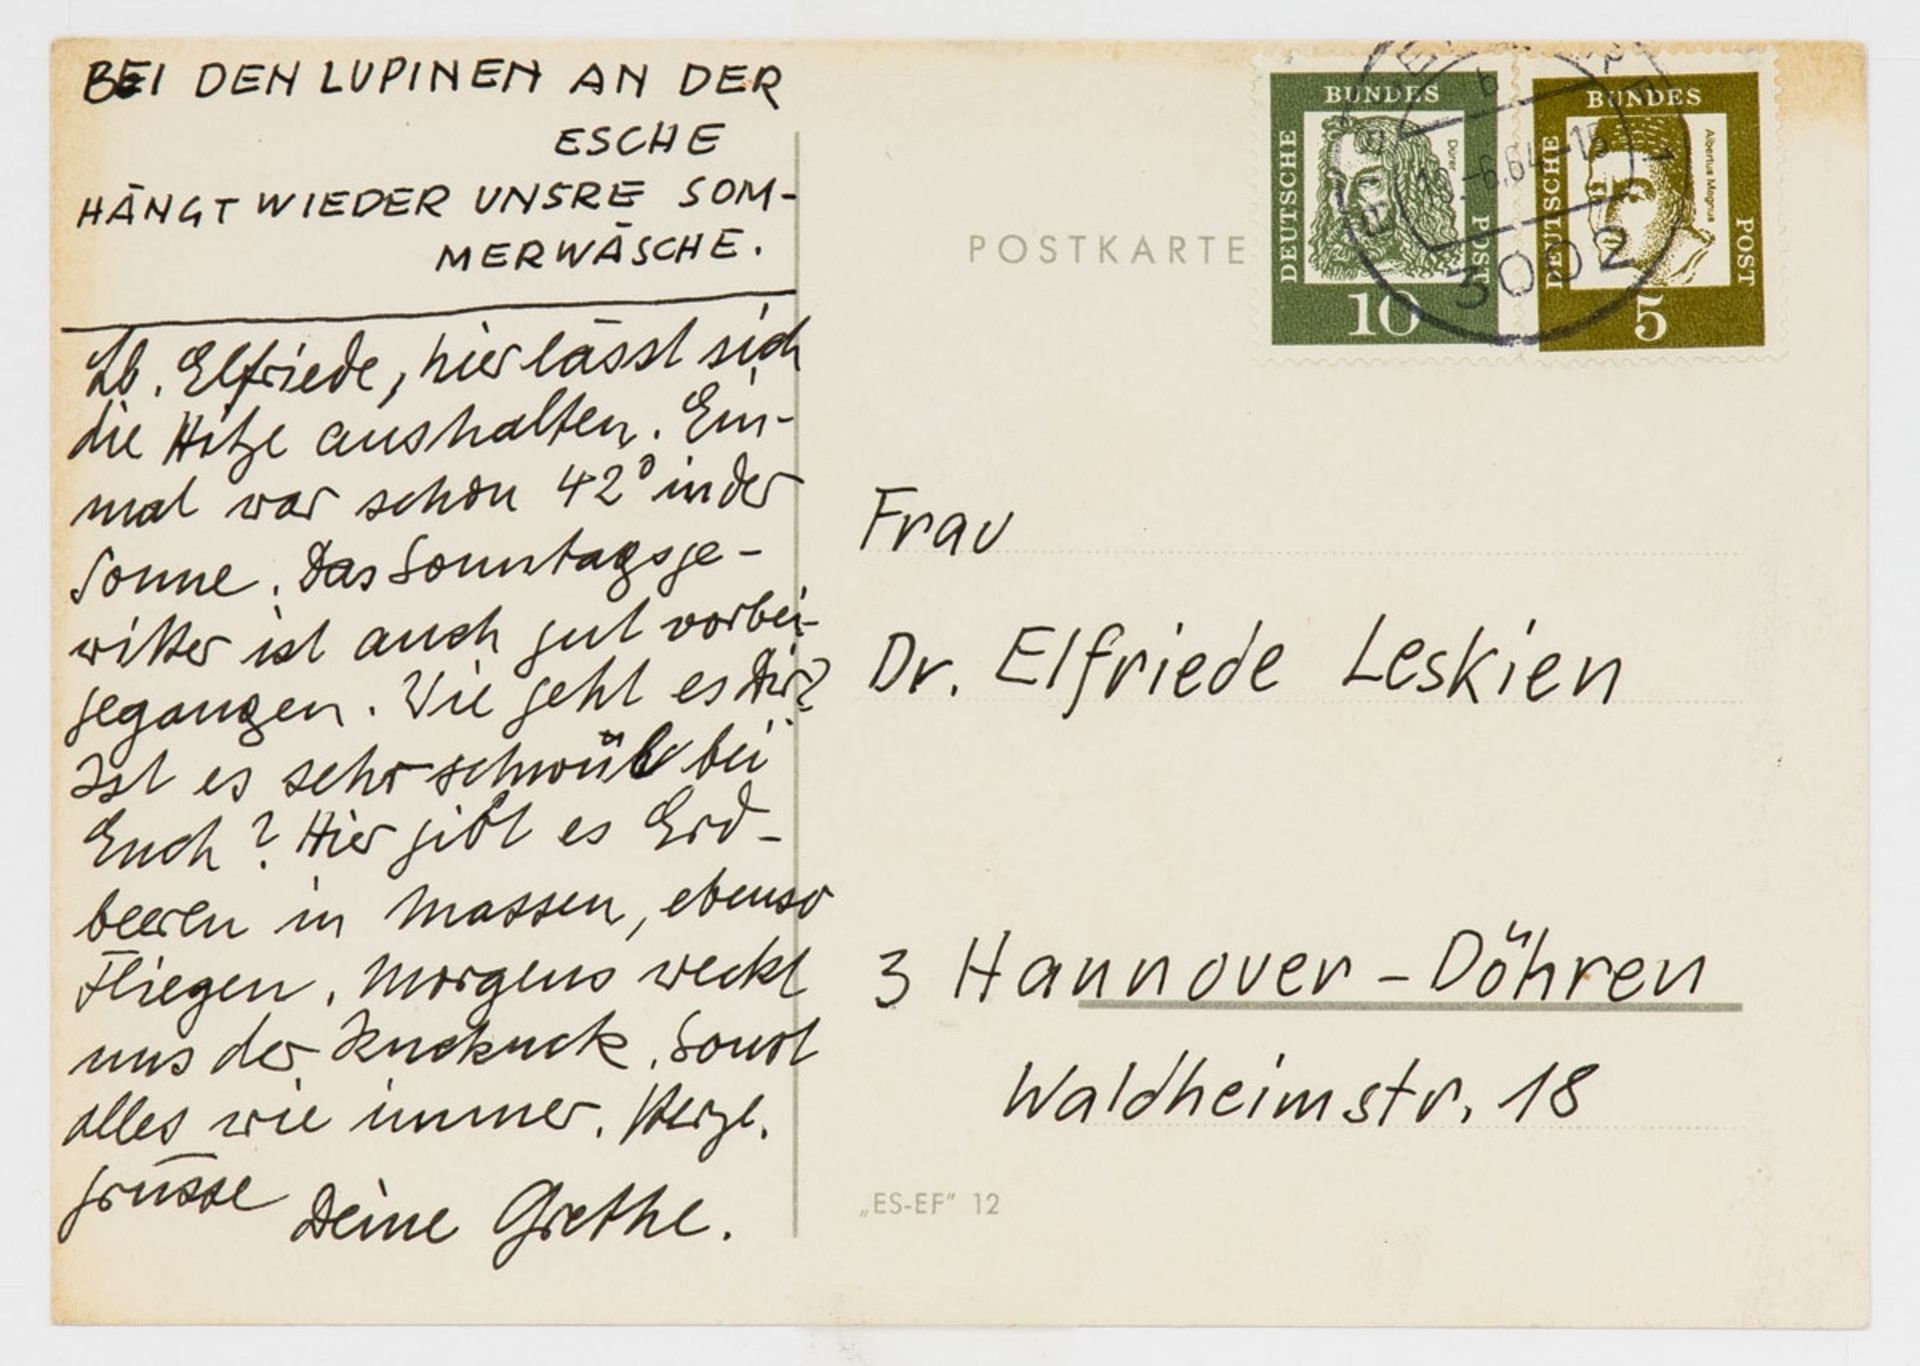 BEI DEN LUPINEN AN DER
ESCHE
HÄNGT WIEDER UNSRE SOM-
MERWÄSCHE.
Lb. Elfriede, hier lässt sich
die Hitze aushalten. Ein-
mal war schon 42° in der
Sonne. Das Sonntagsge-
witter ist auch gut vorbei-
gegangen. Wie geht es Dir?
Ist es sehr schwül bei
Euch? Hier gibt es Erd-
beeren in Massen, ebenso
Fliegen. Morgens weckt
uns der Kuckuck. Sonst
alles wie immer. Herzl.
Grüsse Deine Grethe.
POSTKARTE
DEUTSCHE BUNDES POST
Dürer
10
DEUTSCHE BUNDES POST
Albertus Magnus
5
-6.64-15
3002
Frau
Dr. Elfriede Leskien
3 Hannover-Döhren
Waldheimstr. 18
„ES-EF" 12